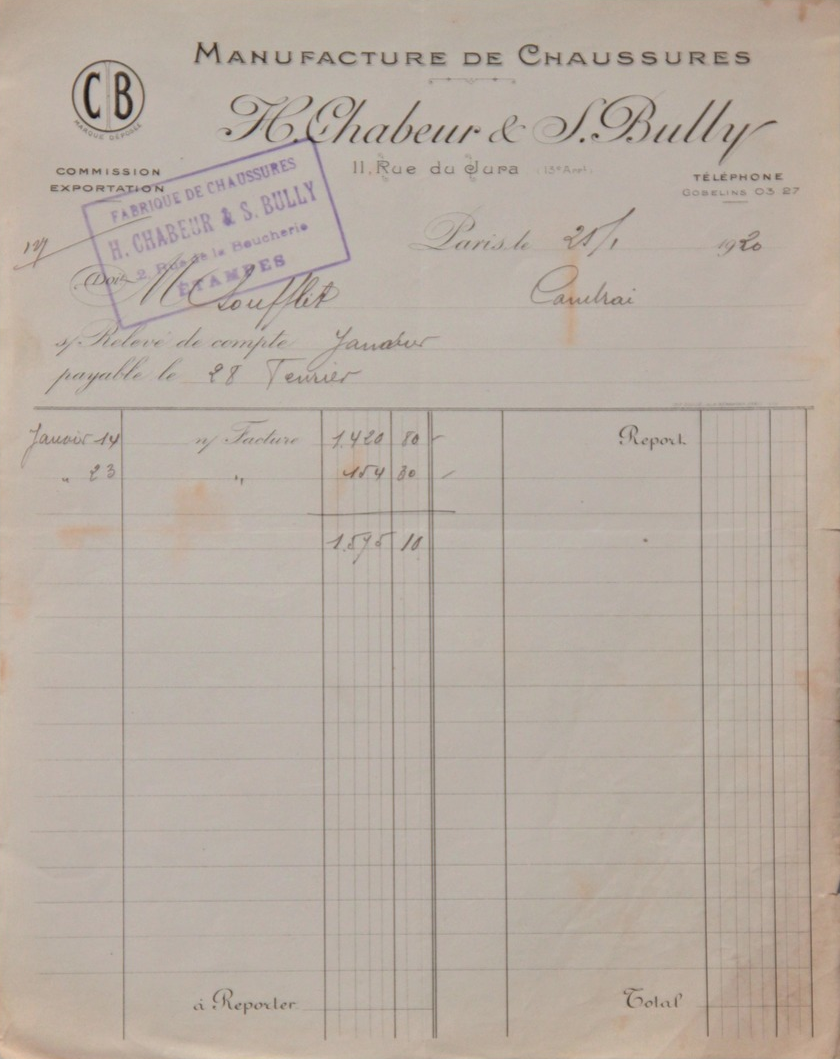 MANUFACTURE DE CHAUSSURES
CB
MARQUE DÉPOSÉE
H. Chabeur & S. Bully
11, Rue du Jura (13e Arrt)
COMMISSION
EXPORTATION
TÉLÉPHONE
GOBELINS 03 27
FABRIQUE DE CHAUSSURES
H. CHABEUR & S. BULLY
2, Rue de la Boucherie
ÉTAMPES
Paris, le 25/1 1920
Doit M Soufflet Cambrai
s/ Relevé de compte Janvier
payable le 28 Fevrier
Janvier 14 n/ Facture 1.420 80 Report
" 23 " 154 30
1.575 10
à Reporter Total